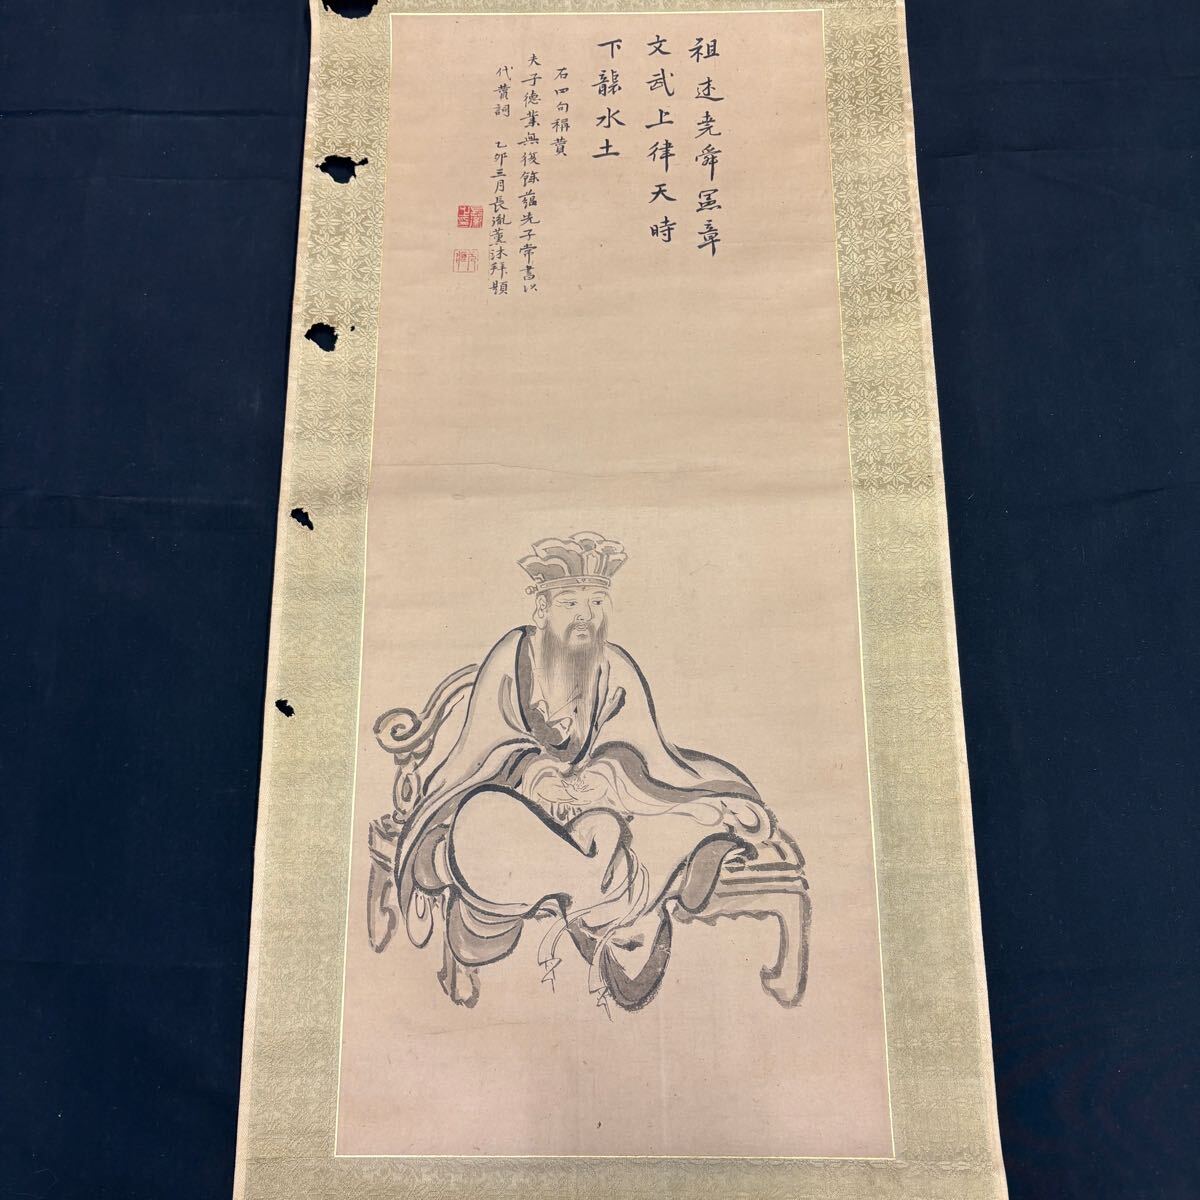 祖述堯舜憲章
文武上律天時
下襲水土
右四句稱贊
夫子德業無復餘蘊先子常書以
代贊詞 乙卯三月長胤薰沐拜題